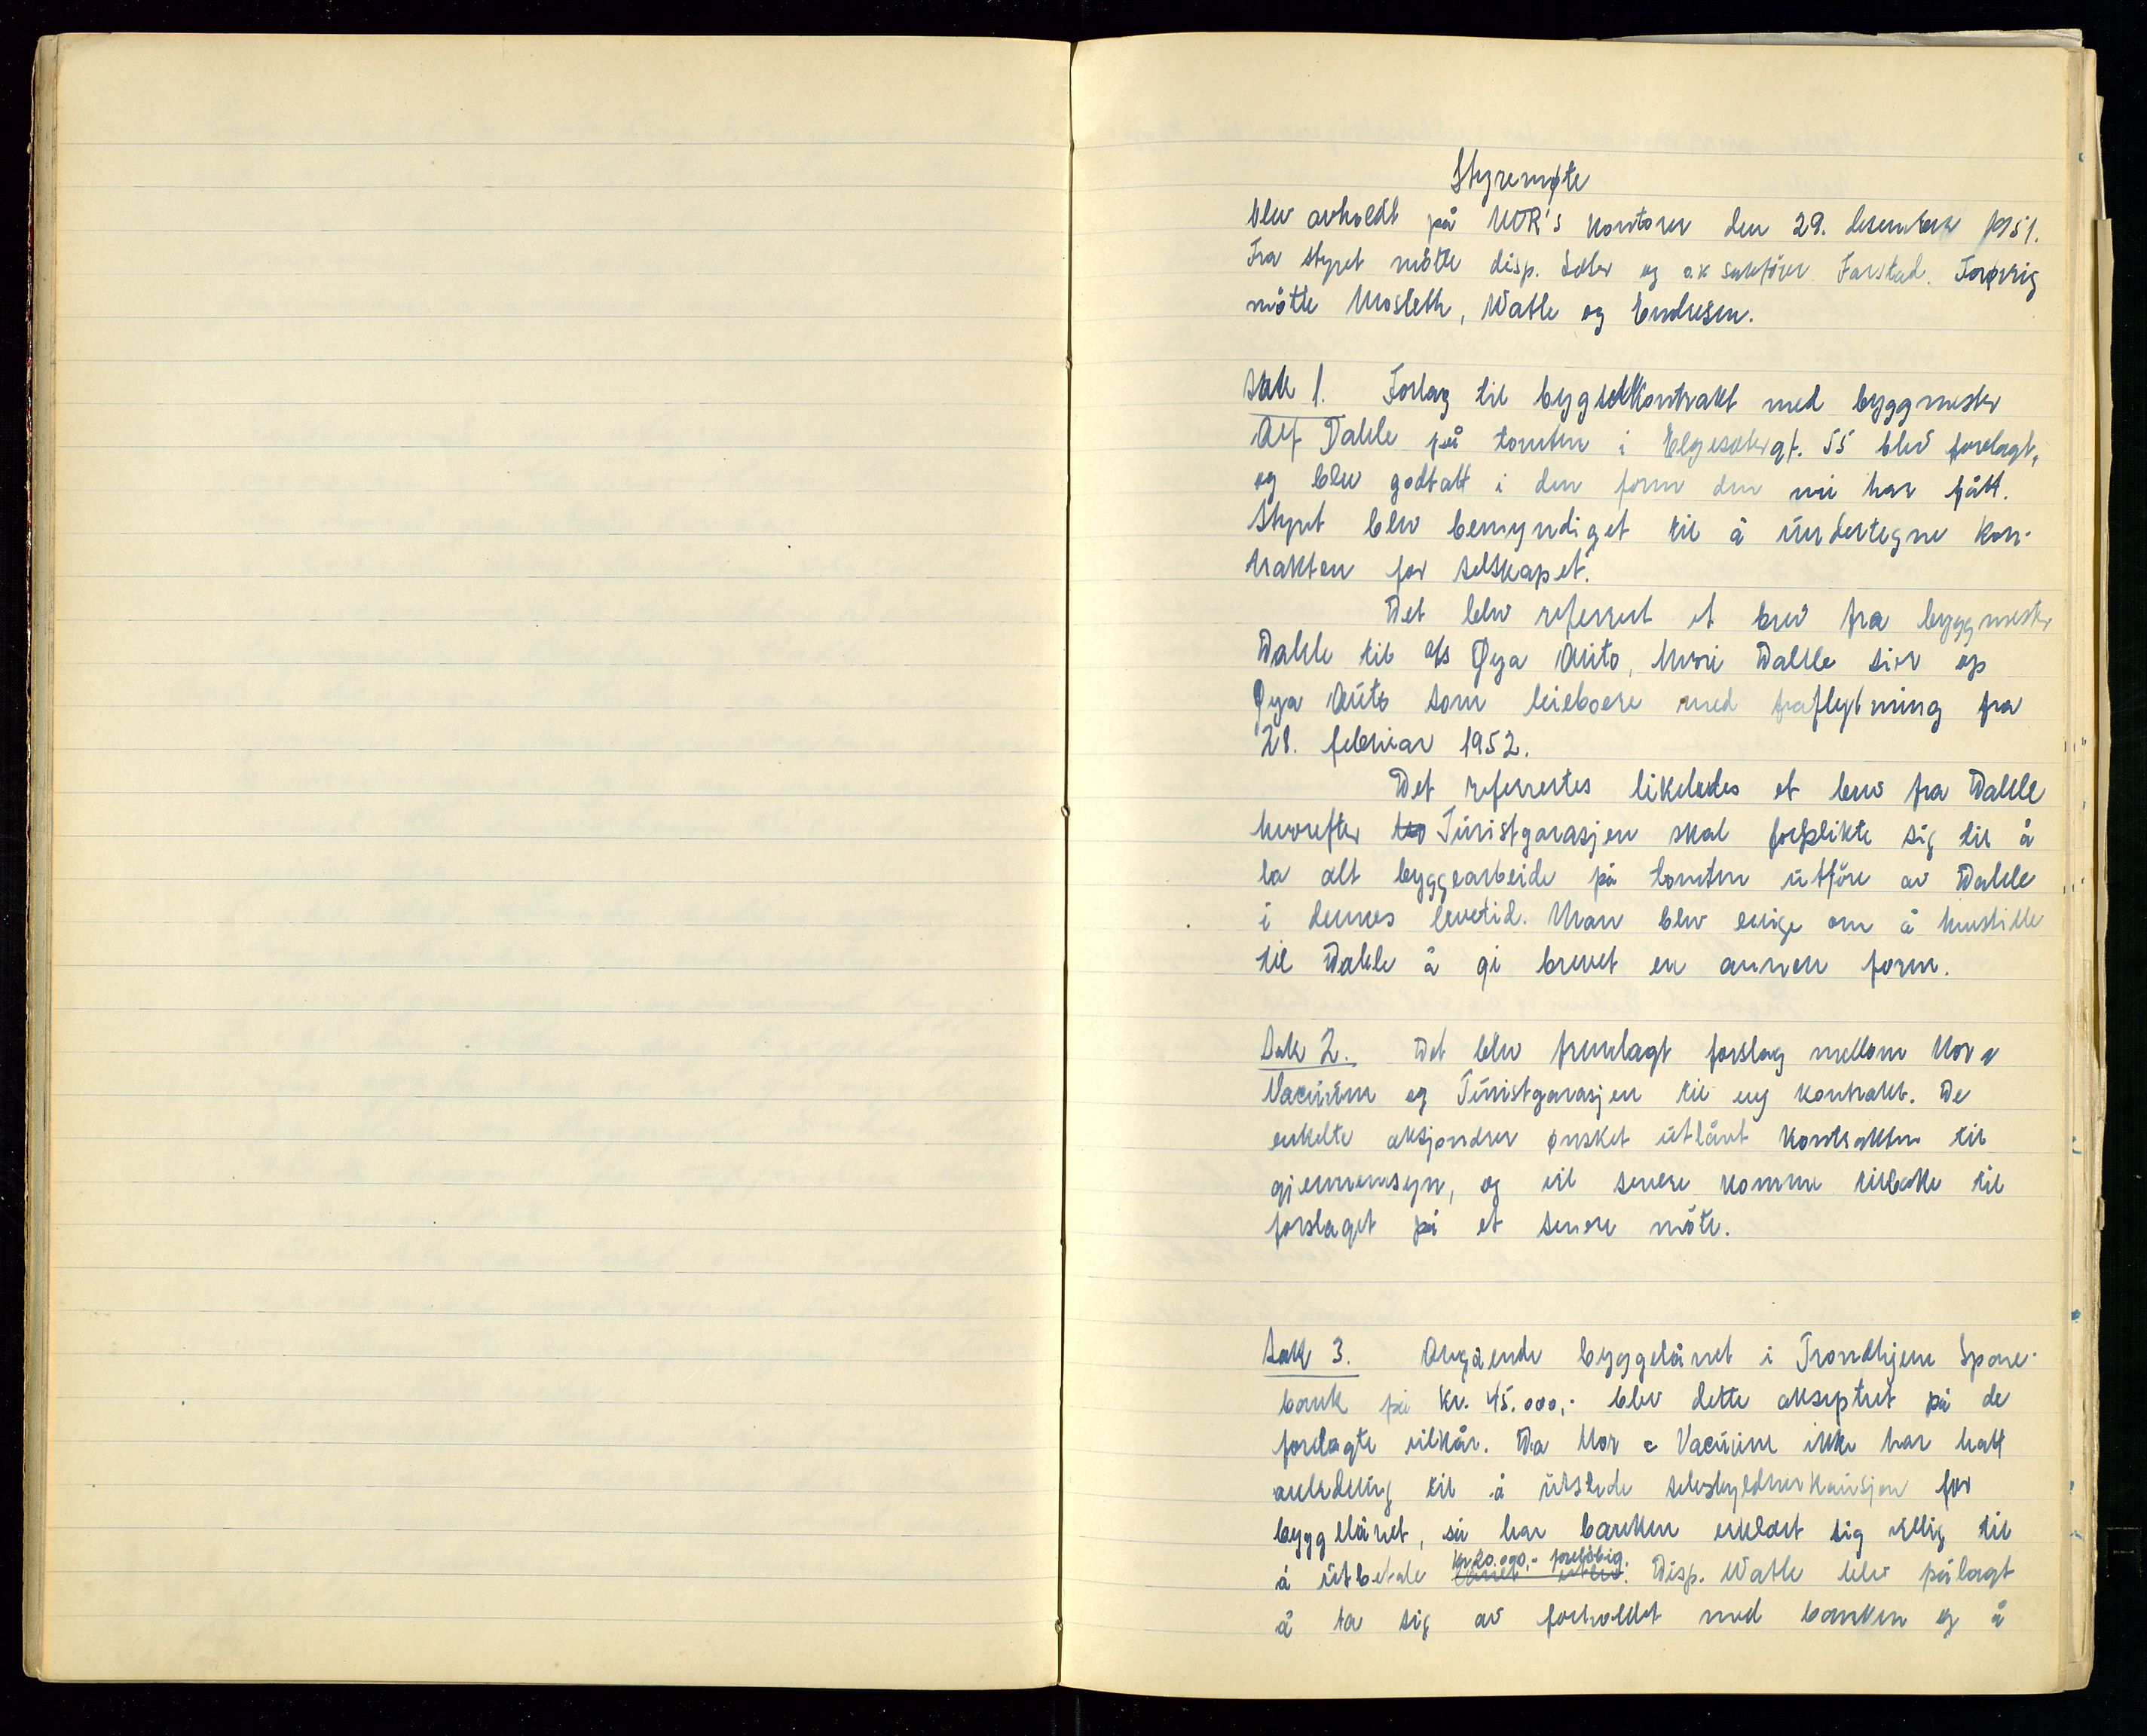 Styremøte
blev avholdt på NOR's kontorer den 29. desember 1951.
Fra styret møtte disp. Sæter og o.r. sakfører Farstad. Forøvrig
møtte Mosleth, Watle og Endresen.
Sak 1. Forlag til bygselkontrakt med byggmester
Alf Dahle på tomten i Elgesætergt. 55 blev forelagt,
og blev godtatt i den form den nu har fått.
Styret blev bemyndiget til å undertegne kon-
trakten for selskapet.
Det blev referert et brev fra byggmester
Dahle til a/s Øya Auto, hvori Dahle sier op
Øya Auto som leieboere med fraflytning fra
28. februar 1952.
Det refertes likeledes et brev fra Dahle
hvorefter Turistgarasjen skal forplikte sig til å
la alt byggearbeide på tomten utføre av Dahle
i dennes levetid. Man blev enige om å henstille
til Dahle å gi brevet en annen form.
Sak 2. Det blev fremlagt forslag mellom Norsk
Vacuum og Turistgarasjen til ny kontrakt. De
enkelte aksjonærer ønsket utlånt kontrakten til
gjennemsyn, og vil senere komme tilbake til
forslaget på et senere møte.
Sak 3. Angående byggelånet i Trondhjem Spare-
bank på kr. 45.000,- blev dette akseptert på de
forelagte vilkår. Da Norsk Vacuum ikke har hatt
anledning til å utstede selvskyldnerkausjon for
byggelånet, så har banken erklært sig villig til
å utbetale kr 20.000,- foreløbig. Disp. Watle blev pålagt
å ta sig av forholdet med banken og å